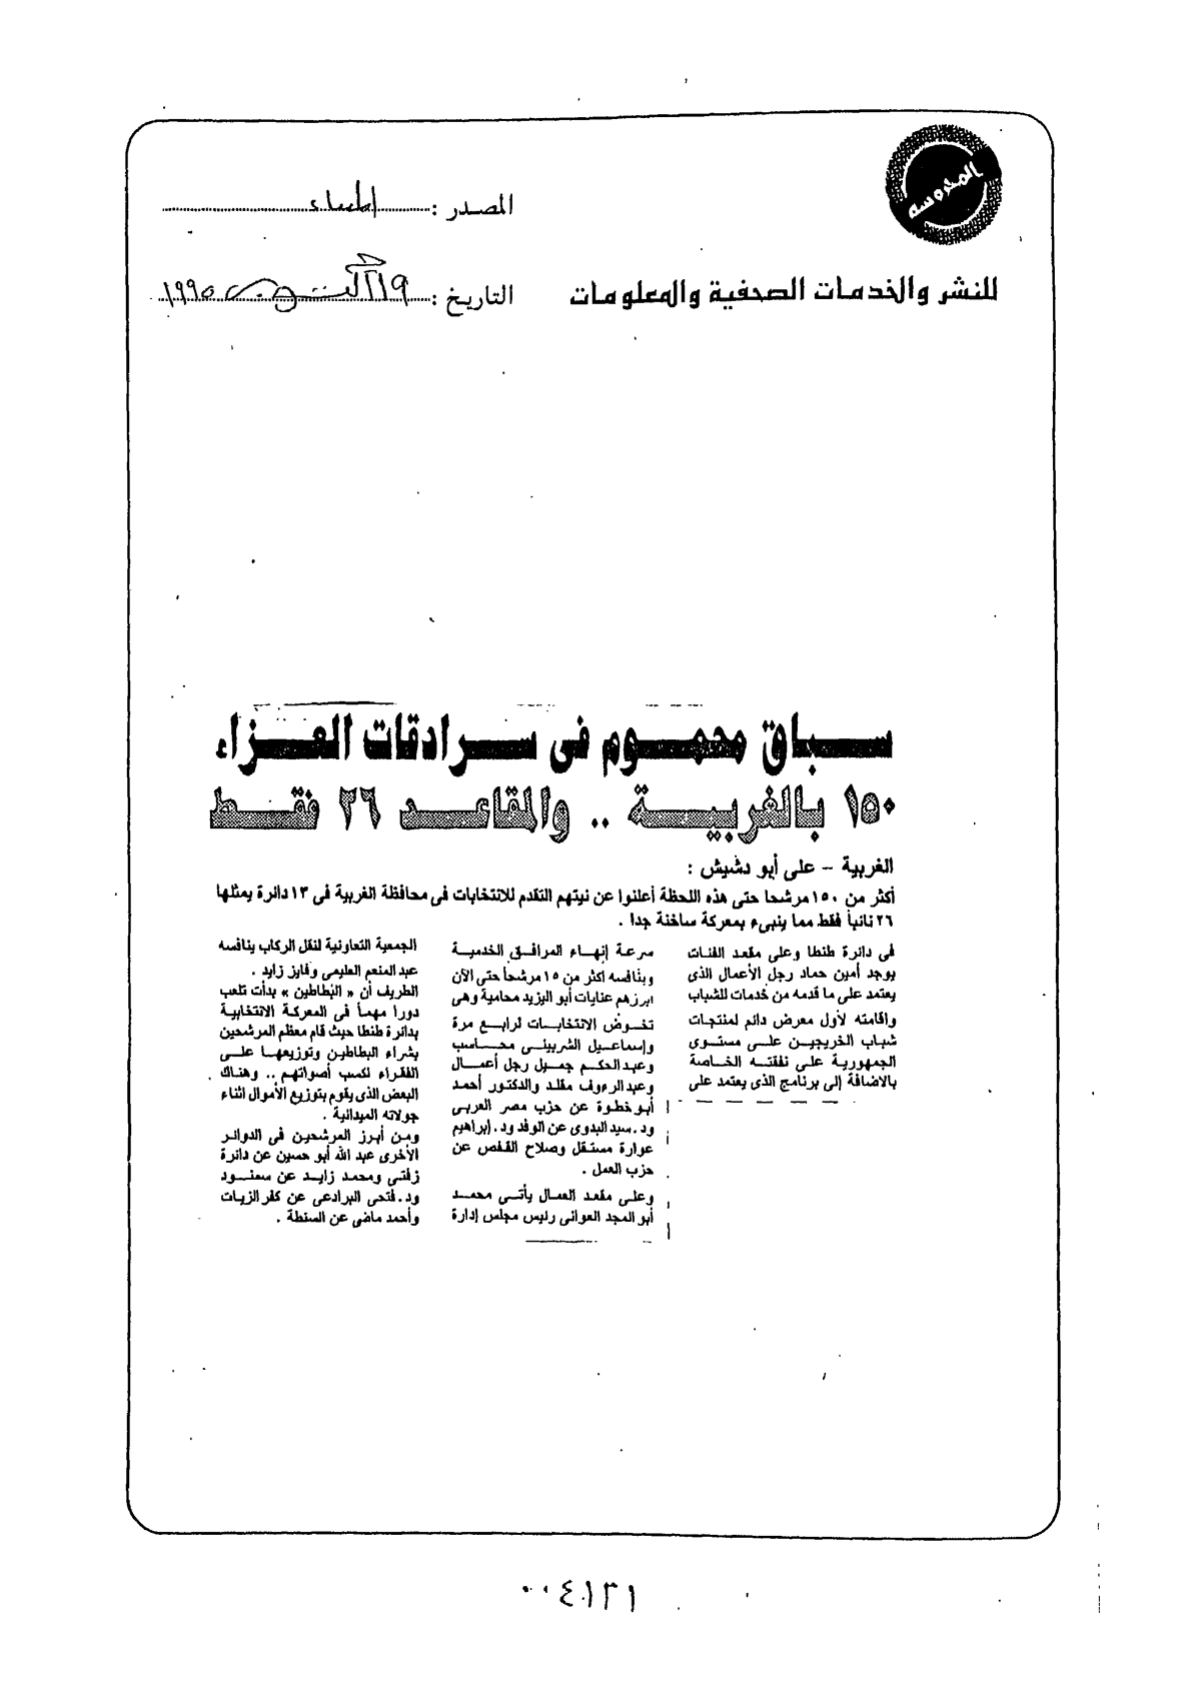 المحروسة
المصدر :
التاريخ : ١٩ أكتوبر ١٩٩٥
للنشر والخدمات الصحفية والمعلومات
سباق محموم فى سرادقات العزاء
١٥٠ بالغربية .. والمقاعد ٢٦ فقط
الغربية - على أبو دشيش :
أكثر من ١٥٠ مرشحا حتى هذه اللحظة أعلنوا عن نيتهم التقدم للانتخابات فى محافظة الغربية فى ١٣ دائرة يمثلها
٢٦ نائباً فقط مما ينبىء بمعركة ساخنة جدا .
فى دائرة طنطا وعلى مقعد الفئات
يوجد أمين حماد رجل الأعمال الذى
يعتمد على ما قدمه من خدمات للشباب
واقامته لأول معرض دائم لمنتجات
شباب الخريجين على مستوى
الجمهورية على نفقته الخاصة
بالاضافة إلى برنامج الذى يعتمد على
سرعة إنهاء المرافق الخدمية
وينافسه أكثر من ١٥ مرشحاً حتى الآن
ابرزهم عنايات أبو اليزيد محامية وهى
تخوض الانتخابات لرابع مرة
وإسماعيل الشربينى محاسب
وعبد الحكم جميل رجل أعمال
وعبد الرءوف مقلد والدكتور أحمد
أبو خطوة عن حزب مصر العربى
ود. سيد البدوى عن الوفد ود. إبراهيم
عوارة مستقل وصلاح القفص عن
حزب العمل .
وعلى مقعد العمال يأتى محمد
أبو المجد العوانى رئيس مجلس إدارة
الجمعية التعاونية لنقل الركاب ينافسه
عبد المنعم العليمى وفايز زايد .
الطريف أن « البطاطين » بدأت تلعب
دورا مهماً فى المعركة الانتخابية
بدائرة طنطا حيث قام معظم المرشحين
بشراء البطاطين وتوزيعها على
الفقراء لكسب أصواتهم .. وهناك
البعض الذى يقوم بتوزيع الأموال اثناء
جولاته الميدانية .
ومن أبرز المرشحين فى الدوائر
الأخرى عبد الله أبو حسين عن دائرة
زفتى ومحمد زايد عن سمنود
ود. فتحى البرادعى عن كفر الزيات
وأحمد ماضى عن السنطة .
٠٠٤١٢١